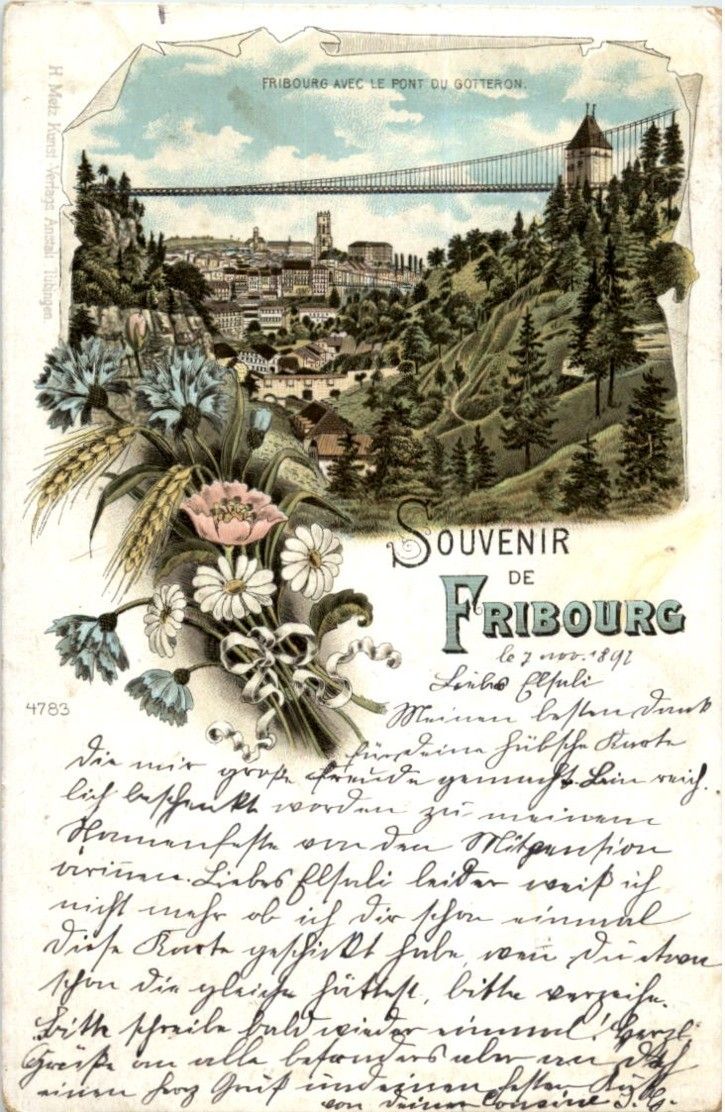 FRIBOURG AVEC LE PONT DU GOTTERON.
H. Metz Kunst Verlags Anstalt Tübingen
SOUVENIR
DE
FRIBOURG
4783
le 7 nov. 1897
Liebes Elsuli
Meinen besten Dank
für deine hübsche Karte
die mir große Freude gemacht. Bin reich
lich beschenkt worden zu meinem
Namenfeste von den Mitpension
ärinnen. Liebes Elsuli leider weiß ich
nicht mehr ob ich dir schon einmal
diese Karte geschickt habe, wen̄ du etwa
schon die gleiche hättest, bitte verzeihe.
Bitte schreibe bald wieder einmal! Herzl.
Grüße an alle besonders aber an Dich
einen herz Gruß und einen festen Kuß
von deiner Cousine J. G.